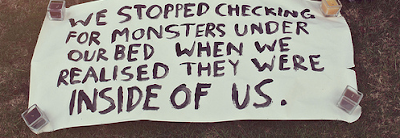 WE STOPPED CHECKING
FOR MONSTERS UNDER
OUR BED WHEN WE
REALISED THEY WERE
INSIDE OF US.